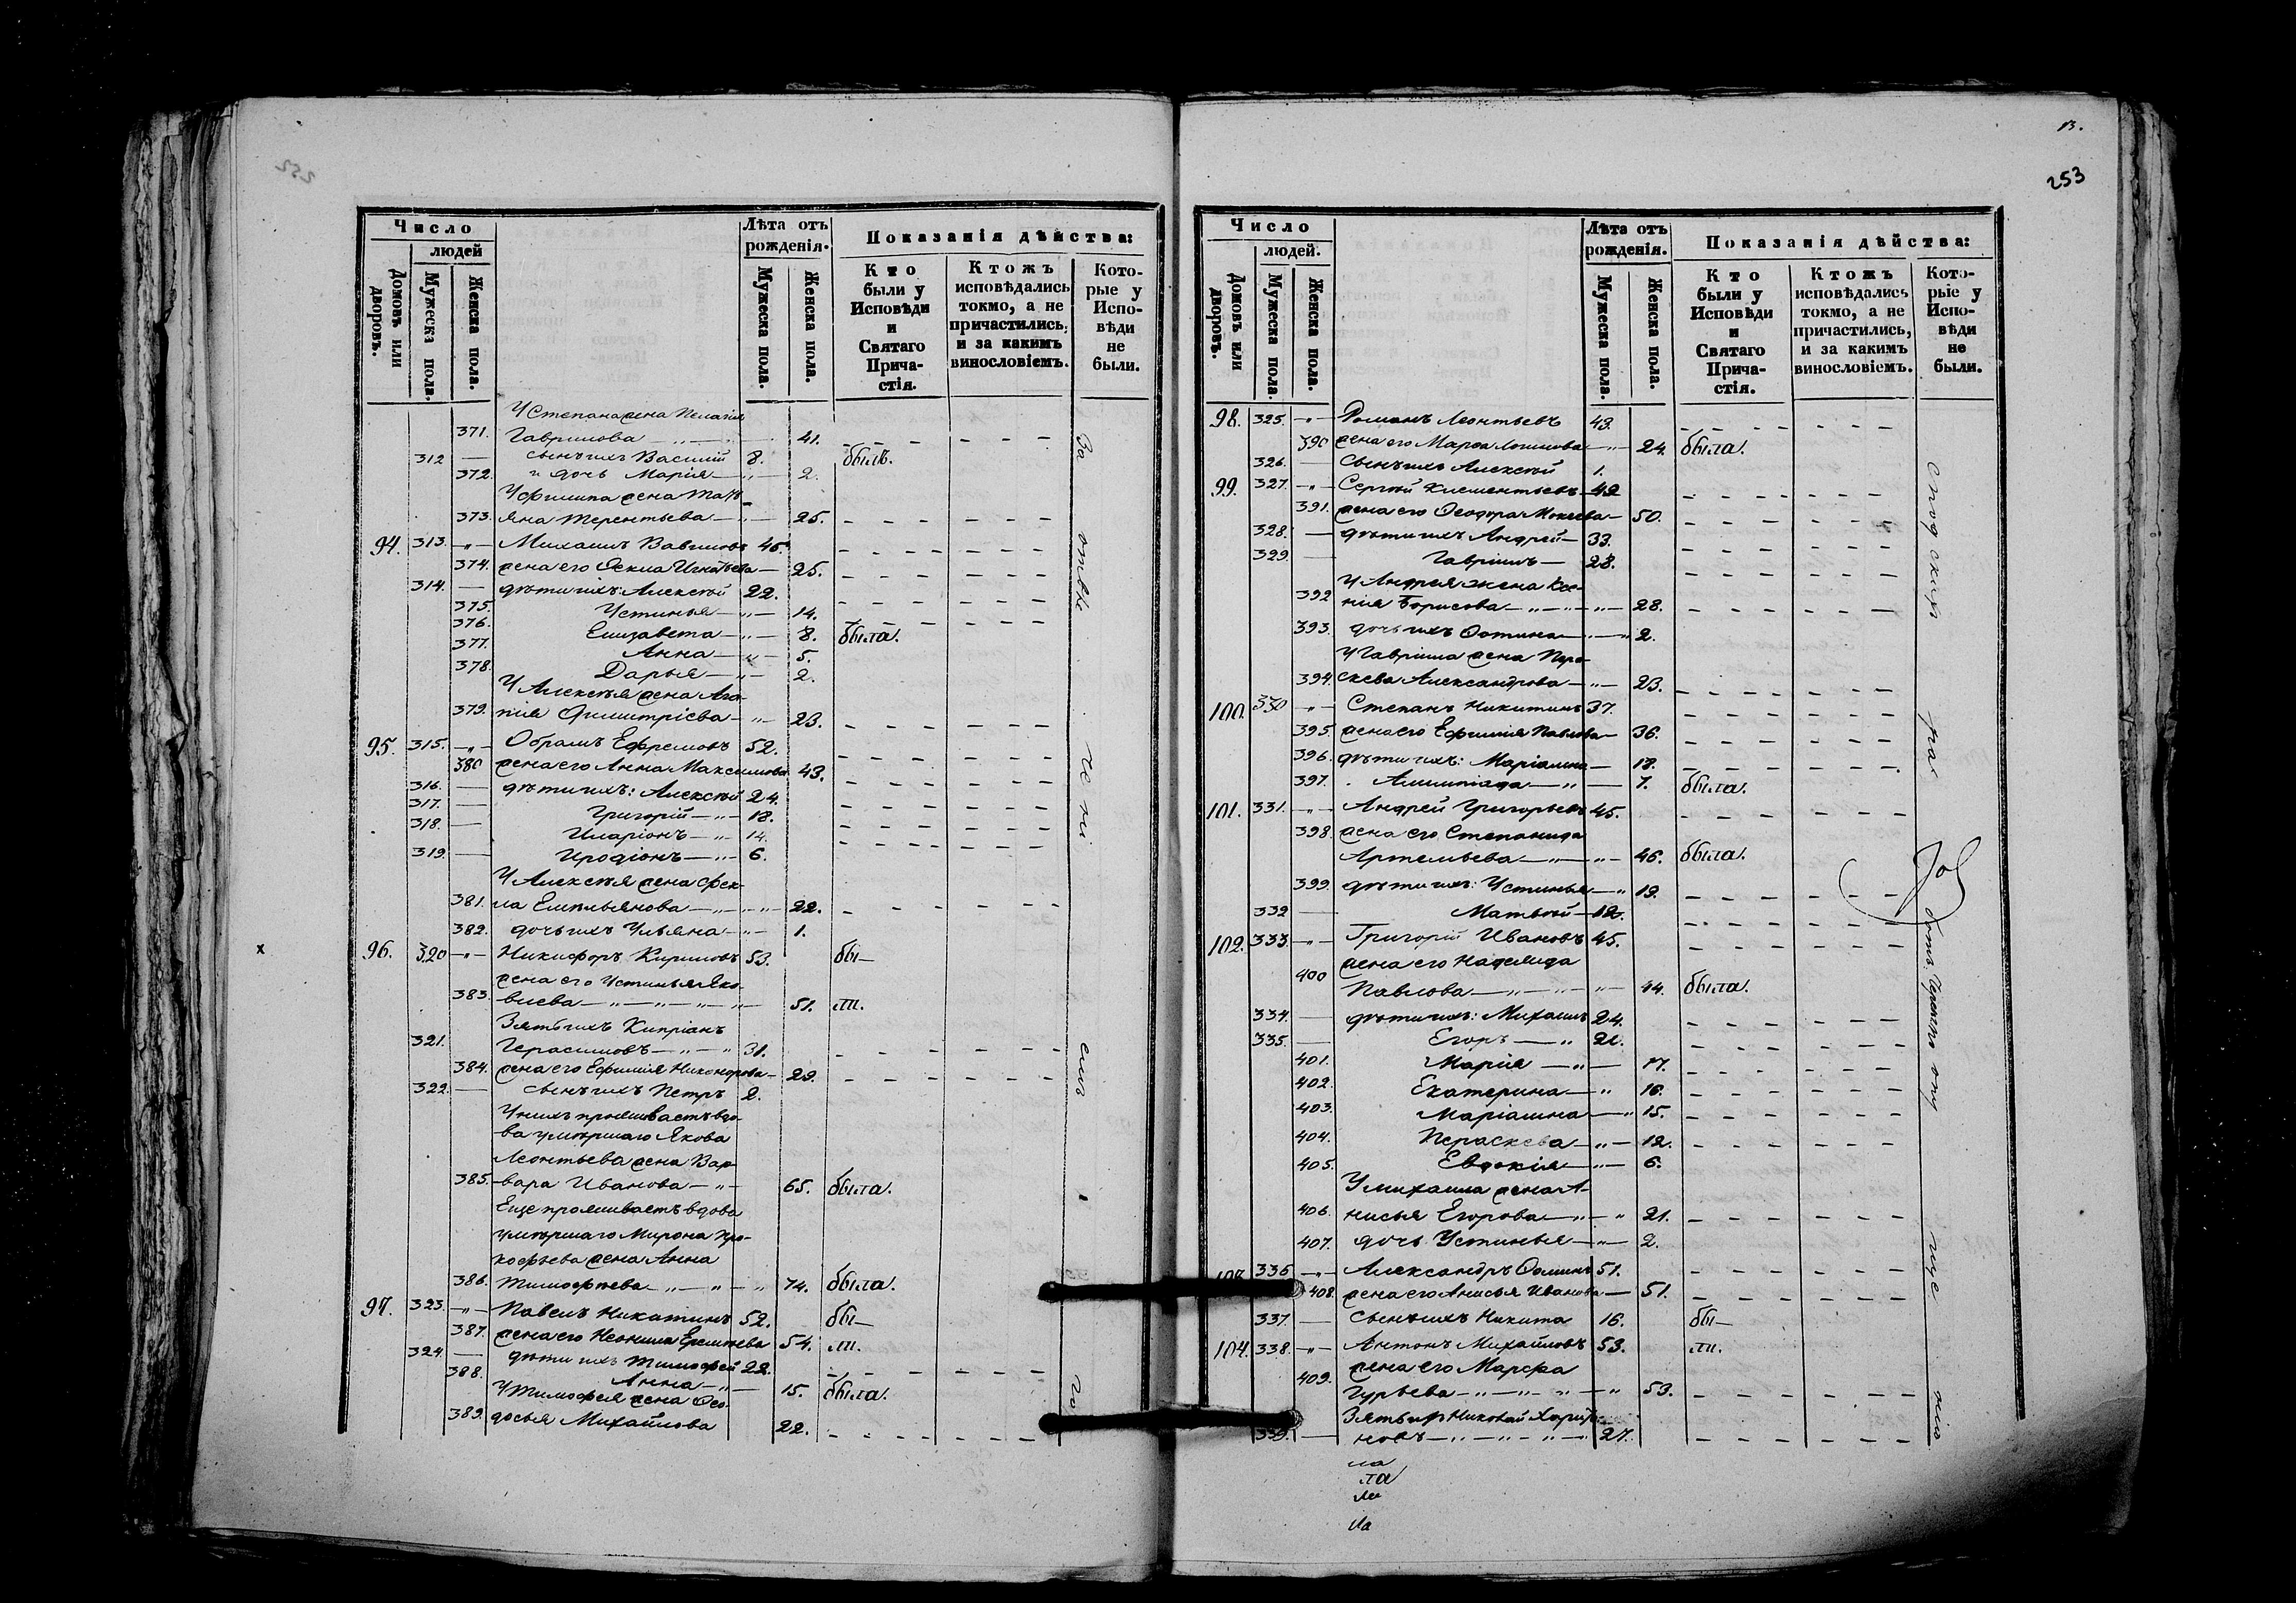 252
Число
людей
Домовъ или дворовъ.
Мужеска пола.
Женска пола.
Лѣта отъ рожденія.
Мужеска пола.
Женска пола.
Показанія дѣйства:
Кто были у Исповѣди и Святаго Прича-стія.
Ктожъ исповѣдались токмо, а не причастились, и за какимъ винословіемъ.
Кото-рые у Испо-вѣди не были.
У Степана жена Пелагія
371. Гаврилова 41.
312 сынъ ихъ Василій 8. былъ.
372. и дочь Марія 2.
У Филиппа жена Тать-
373. яна Терентьева 25.
94. 313. Михаилъ Вавиловъ 45.
374. жена его Игнатьева 25.
314. дѣти ихъ: Алексѣй 22.
375. Устинья 14.
376. Елизавета 8. была.
377. Анна 5.
378. Дарья 2.
У Алексѣя жена Ага-
379. пія Димитріева 23.
95. 315. Абрамъ Ефремовъ 52.
380 жена его Анна Максимова 43.
316. дѣти ихъ: Алексѣй 24.
317. Григорій 18.
318. Иларіонъ 14.
319. Иродіонъ 6.
У Алексѣя жена Фек-
381. ла Емельянова 22.
382. дочь ихъ Ульяна 1.
x 96. 320 Никифоръ Кириловъ 53. бы—
жена его Устинья Яко-
383. влева 51. ли.
Зять ихъ Кипріанъ
321. Герасимовъ 31.
384. жена его Ефимія Никонорова 29.
322. сынъ ихъ Петръ 2.
У нихъ проживаетъ вдо-
ва умершаго Якова
Леонтьева жена Вар-
385. вара Иванова 65. была.
Еще проживаетъ вдова
умершаго Мирона Про-
кофьева жена Анна
386. Тимофеева 74. была.
97. 323. Павелъ Никитинъ 52. бы—
387. жена его Неонила 54. ли.
324. дѣти ихъ Тимофей 22.
388. Анна 15. была.
У Тимофея жена Ѳео-
389. досья Михайлова 22.
За
13.
253
Число
людей.
Домовъ или дворовъ.
Мужеска пола.
Женска пола.
Лѣта отъ рожденія.
Мужеска пола.
Женска пола.
Показанія дѣйства:
Кто были у Исповѣди и Святаго Прича-стія.
Ктожъ исповѣдались токмо, а не причастились, и за какимъ винословіемъ.
Кото-рые у Испо-вѣди не были.
98. 325. Романъ Леонтьевъ 43.
390 жена его Марѳа Логинова 24. была.
326. сынъ ихъ Алексѣй 1.
99. 327. Сергѣй Климентьевъ 49
391. жена его Ѳеодора Мокеева 50.
328. дѣти ихъ Андрей 33.
329. Гавріилъ 28.
У Андрея жена Ксе-
392 нія Борисова 28.
393. дочь ихъ Фотина 2.
У Гавріила жена Пара-
394. скева Александрова 23.
100. 330 Степанъ Никитинъ 37.
395. жена его Ефимія Павлова 36.
396. дѣти ихъ: Маріамна 18.
397. Алимпіада 7. была.
101. 331. Андрей Григорьевъ 45.
398. жена его Степанида
Артемьева 46. была.
399. дѣти ихъ: Устинья 19.
332 Матвѣй 12.
102. 333. Григорій Ивановъ 45.
жена его Надежда
400 Павлова 44. была.
334. дѣти ихъ: Михаилъ 24.
335. Егоръ 21.
401. Марія 17.
402. Екатерина 16.
403. Маріамна 15.
404. Параскева 12.
405. Евдокія 6.
У Михаила жена А-
406. нисья Егорова 21.
407. дочь Устинья 2.
336 Александръ Ѳоминъ 51.
408. жена его Анисья Иванова 51.
337. сынъ ихъ Никита 16. бы—
104. 338. Антонъ Михайловъ 53. ли.
жена его Марфа
409. Гурьева 53.
Зять ихъ Николай Харито-
339. новъ 27.
ла